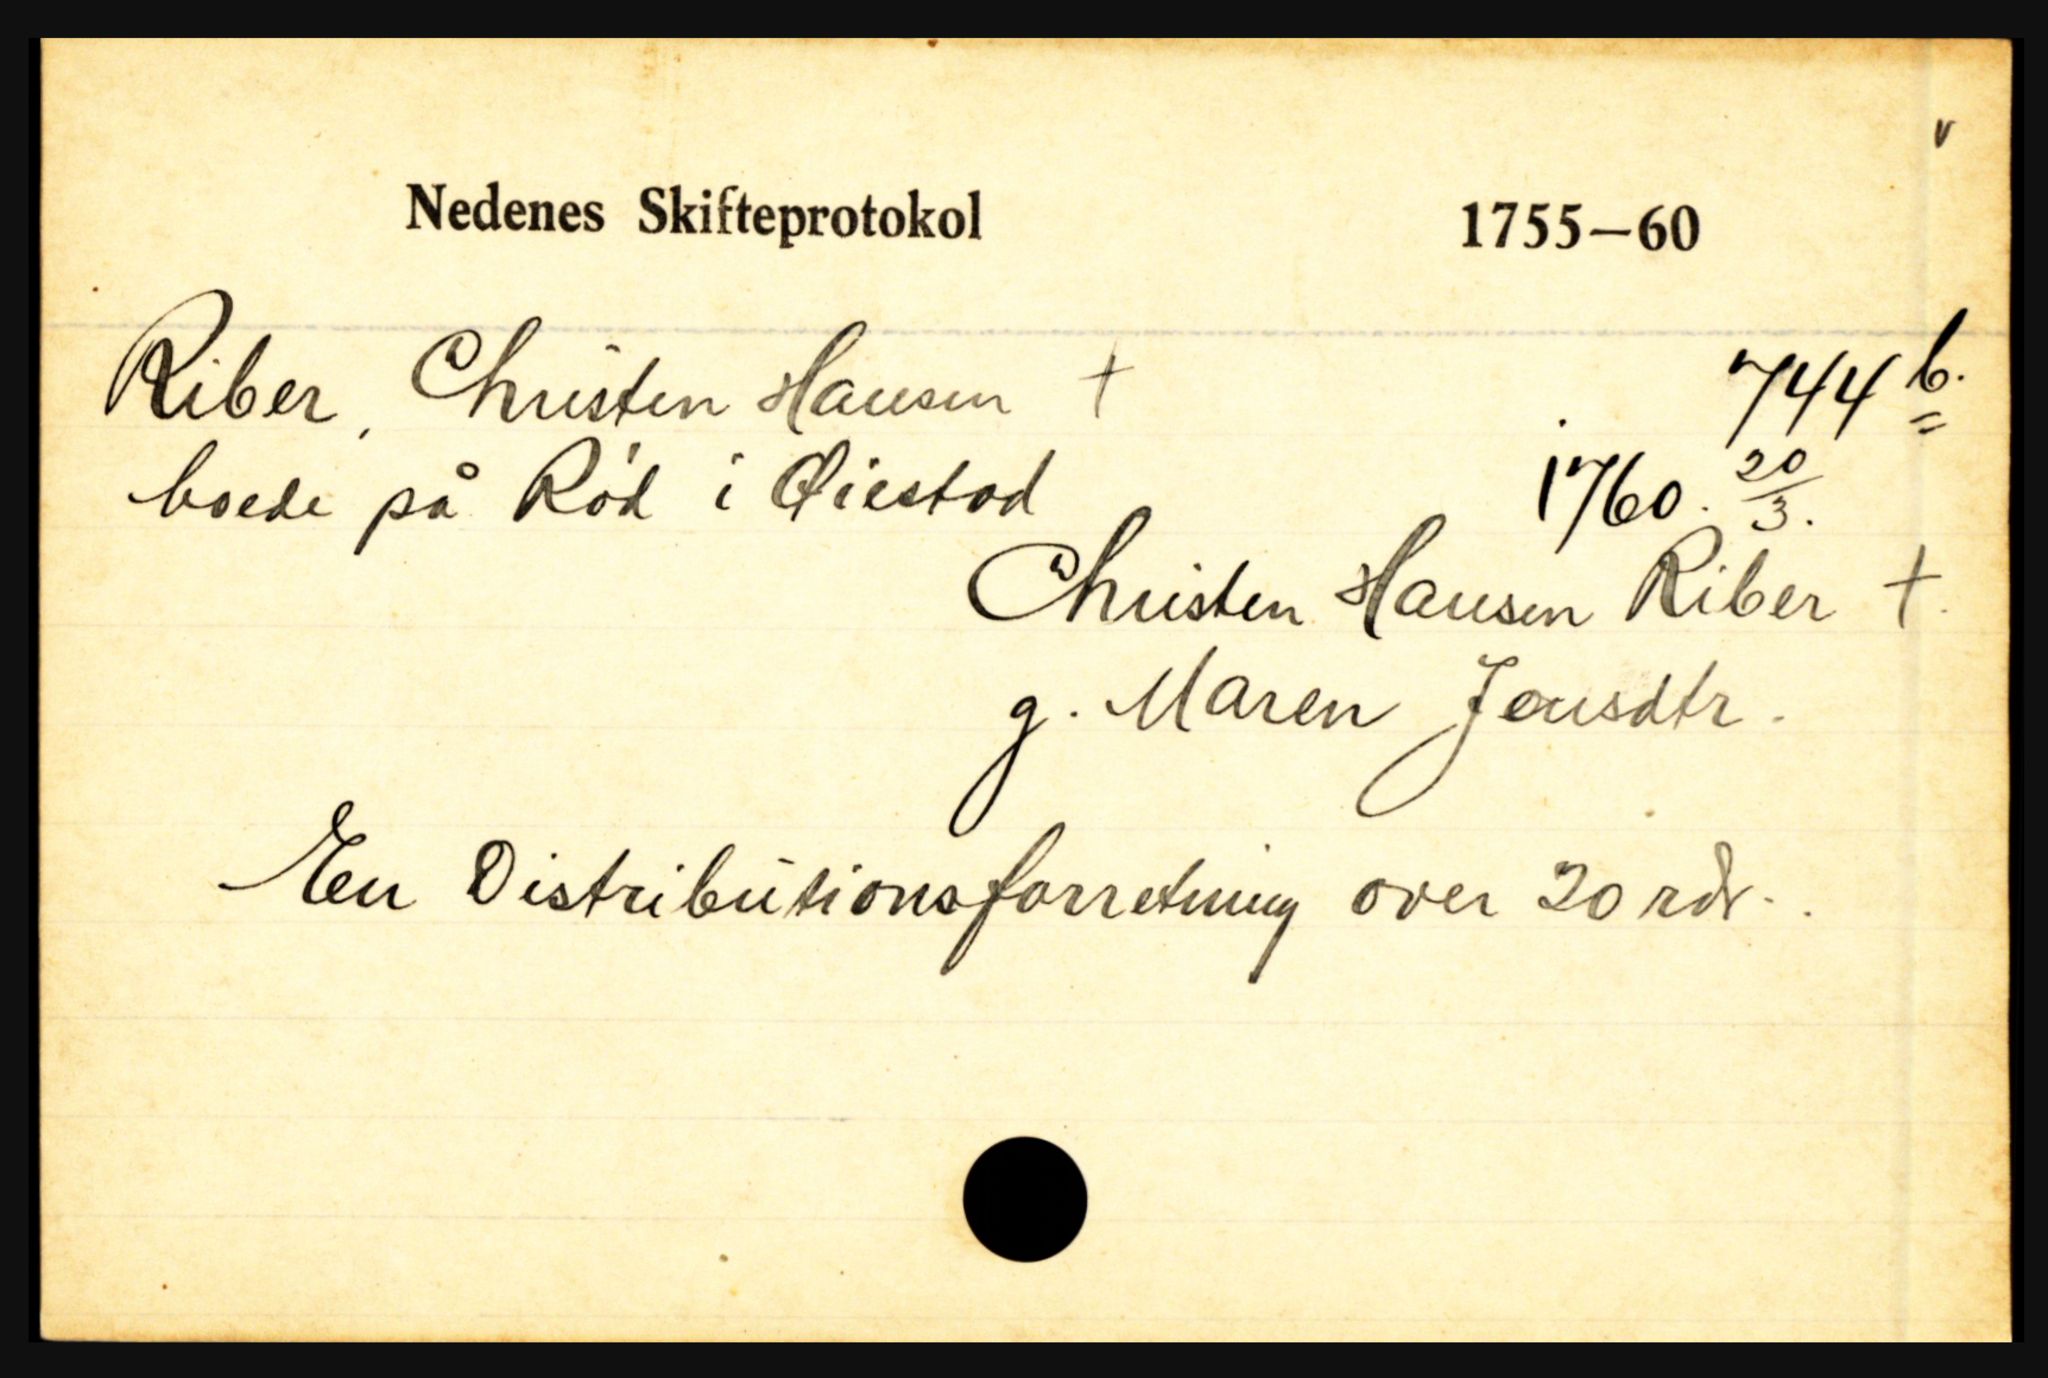 v
Nedenes Skifteprotokol 1755—60
Riber, Christen Hansen † 744 b.
boede på Ród i Øiestad 1760. 20/3.
Christen Hansen Riber †.
g. Maren Jensdtr.
En Distributionsforretning over 20 rdr.